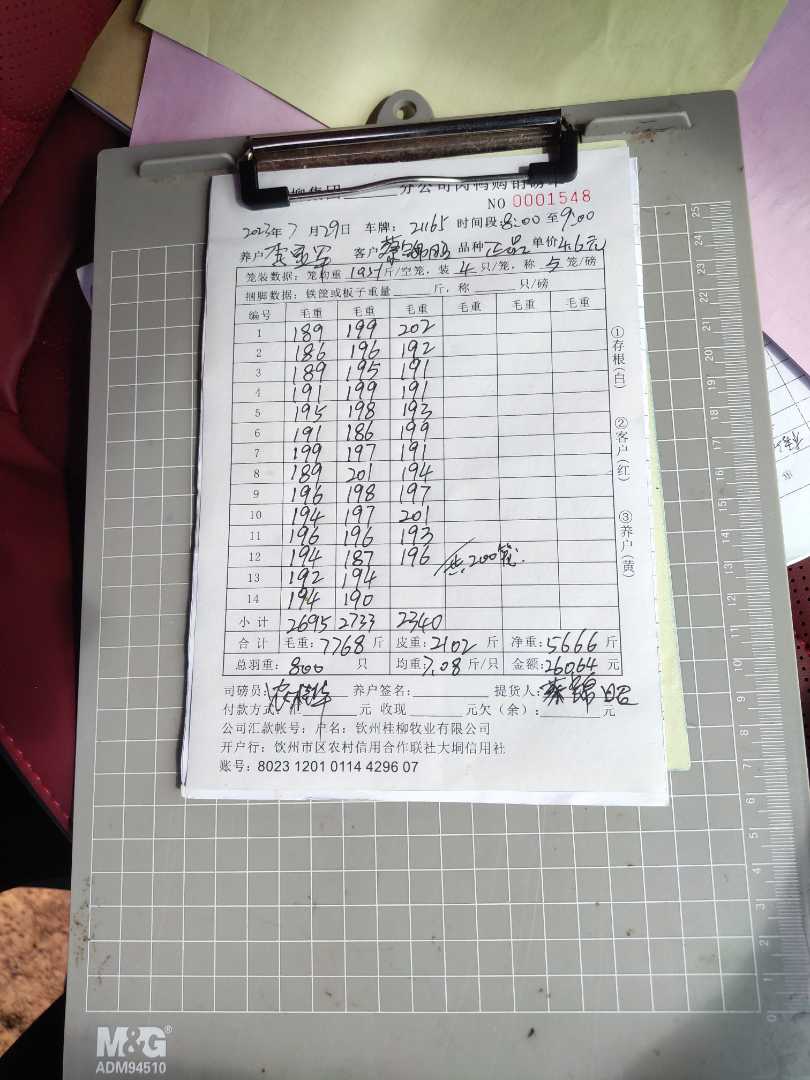 分公司肉鸭购销磅单
NO 0001548
2023年7月29日 车牌：21165 时间段：8:00至9:00
养户 客户 品种 正品 单价4.6元
笼装数据：笼均重 斤/空笼，装 4 只/笼，称 5 笼/磅
捆脚数据：铁筐或板子重量 斤，称 只/磅
编号 毛重 毛重 毛重 毛重 毛重 毛重
1 189 199 202
2 186 196 192
3 189 195 191
4 191 199 191
5 195 198 193
6 191 186 199
7 199 197 191
8 189 201 194
9 196 198 197
10 194 197 201
11 196 196 193
12 194 187 196 共200笼.
13 192 194
14 194 190
小计 2695 2733 2340
合计 毛重：7768 斤 皮重：2102 斤 净重：5666 斤
总羽重：800 只 均重：7.08 斤/只 金额：26064 元
司磅员： 养户签名： 提货人：
付款方式： 元 收现 元欠（余）： 元
公司汇款帐号：户名：钦州桂柳牧业有限公司
开户行：钦州市区农村信用合作联社大垌信用社
账号：8023 1201 0114 4296 07
①存根(白)
②客户(红)
③养户(黄)
25
24
23
22
21
20
19
18
17
16
15
14
13
12
11
10
9
8
7
6
5
4
3
2
1
0
M&G®
ADM94510